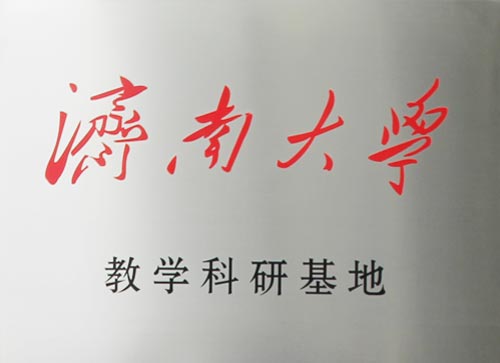 濟南大學
教学科研基地